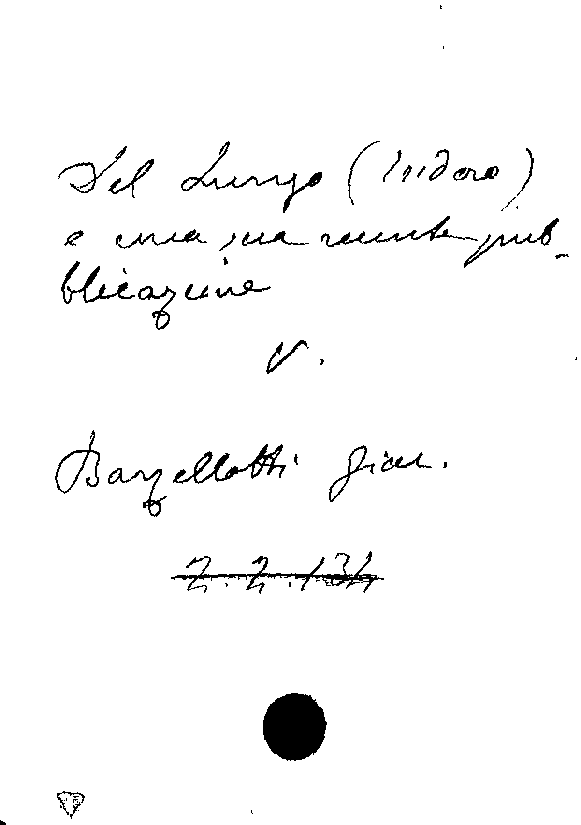 Del Lungo (Isidoro)
e una sua recente pub-
blicazione
V.
Barzellotti Giac.
Z.Z.134